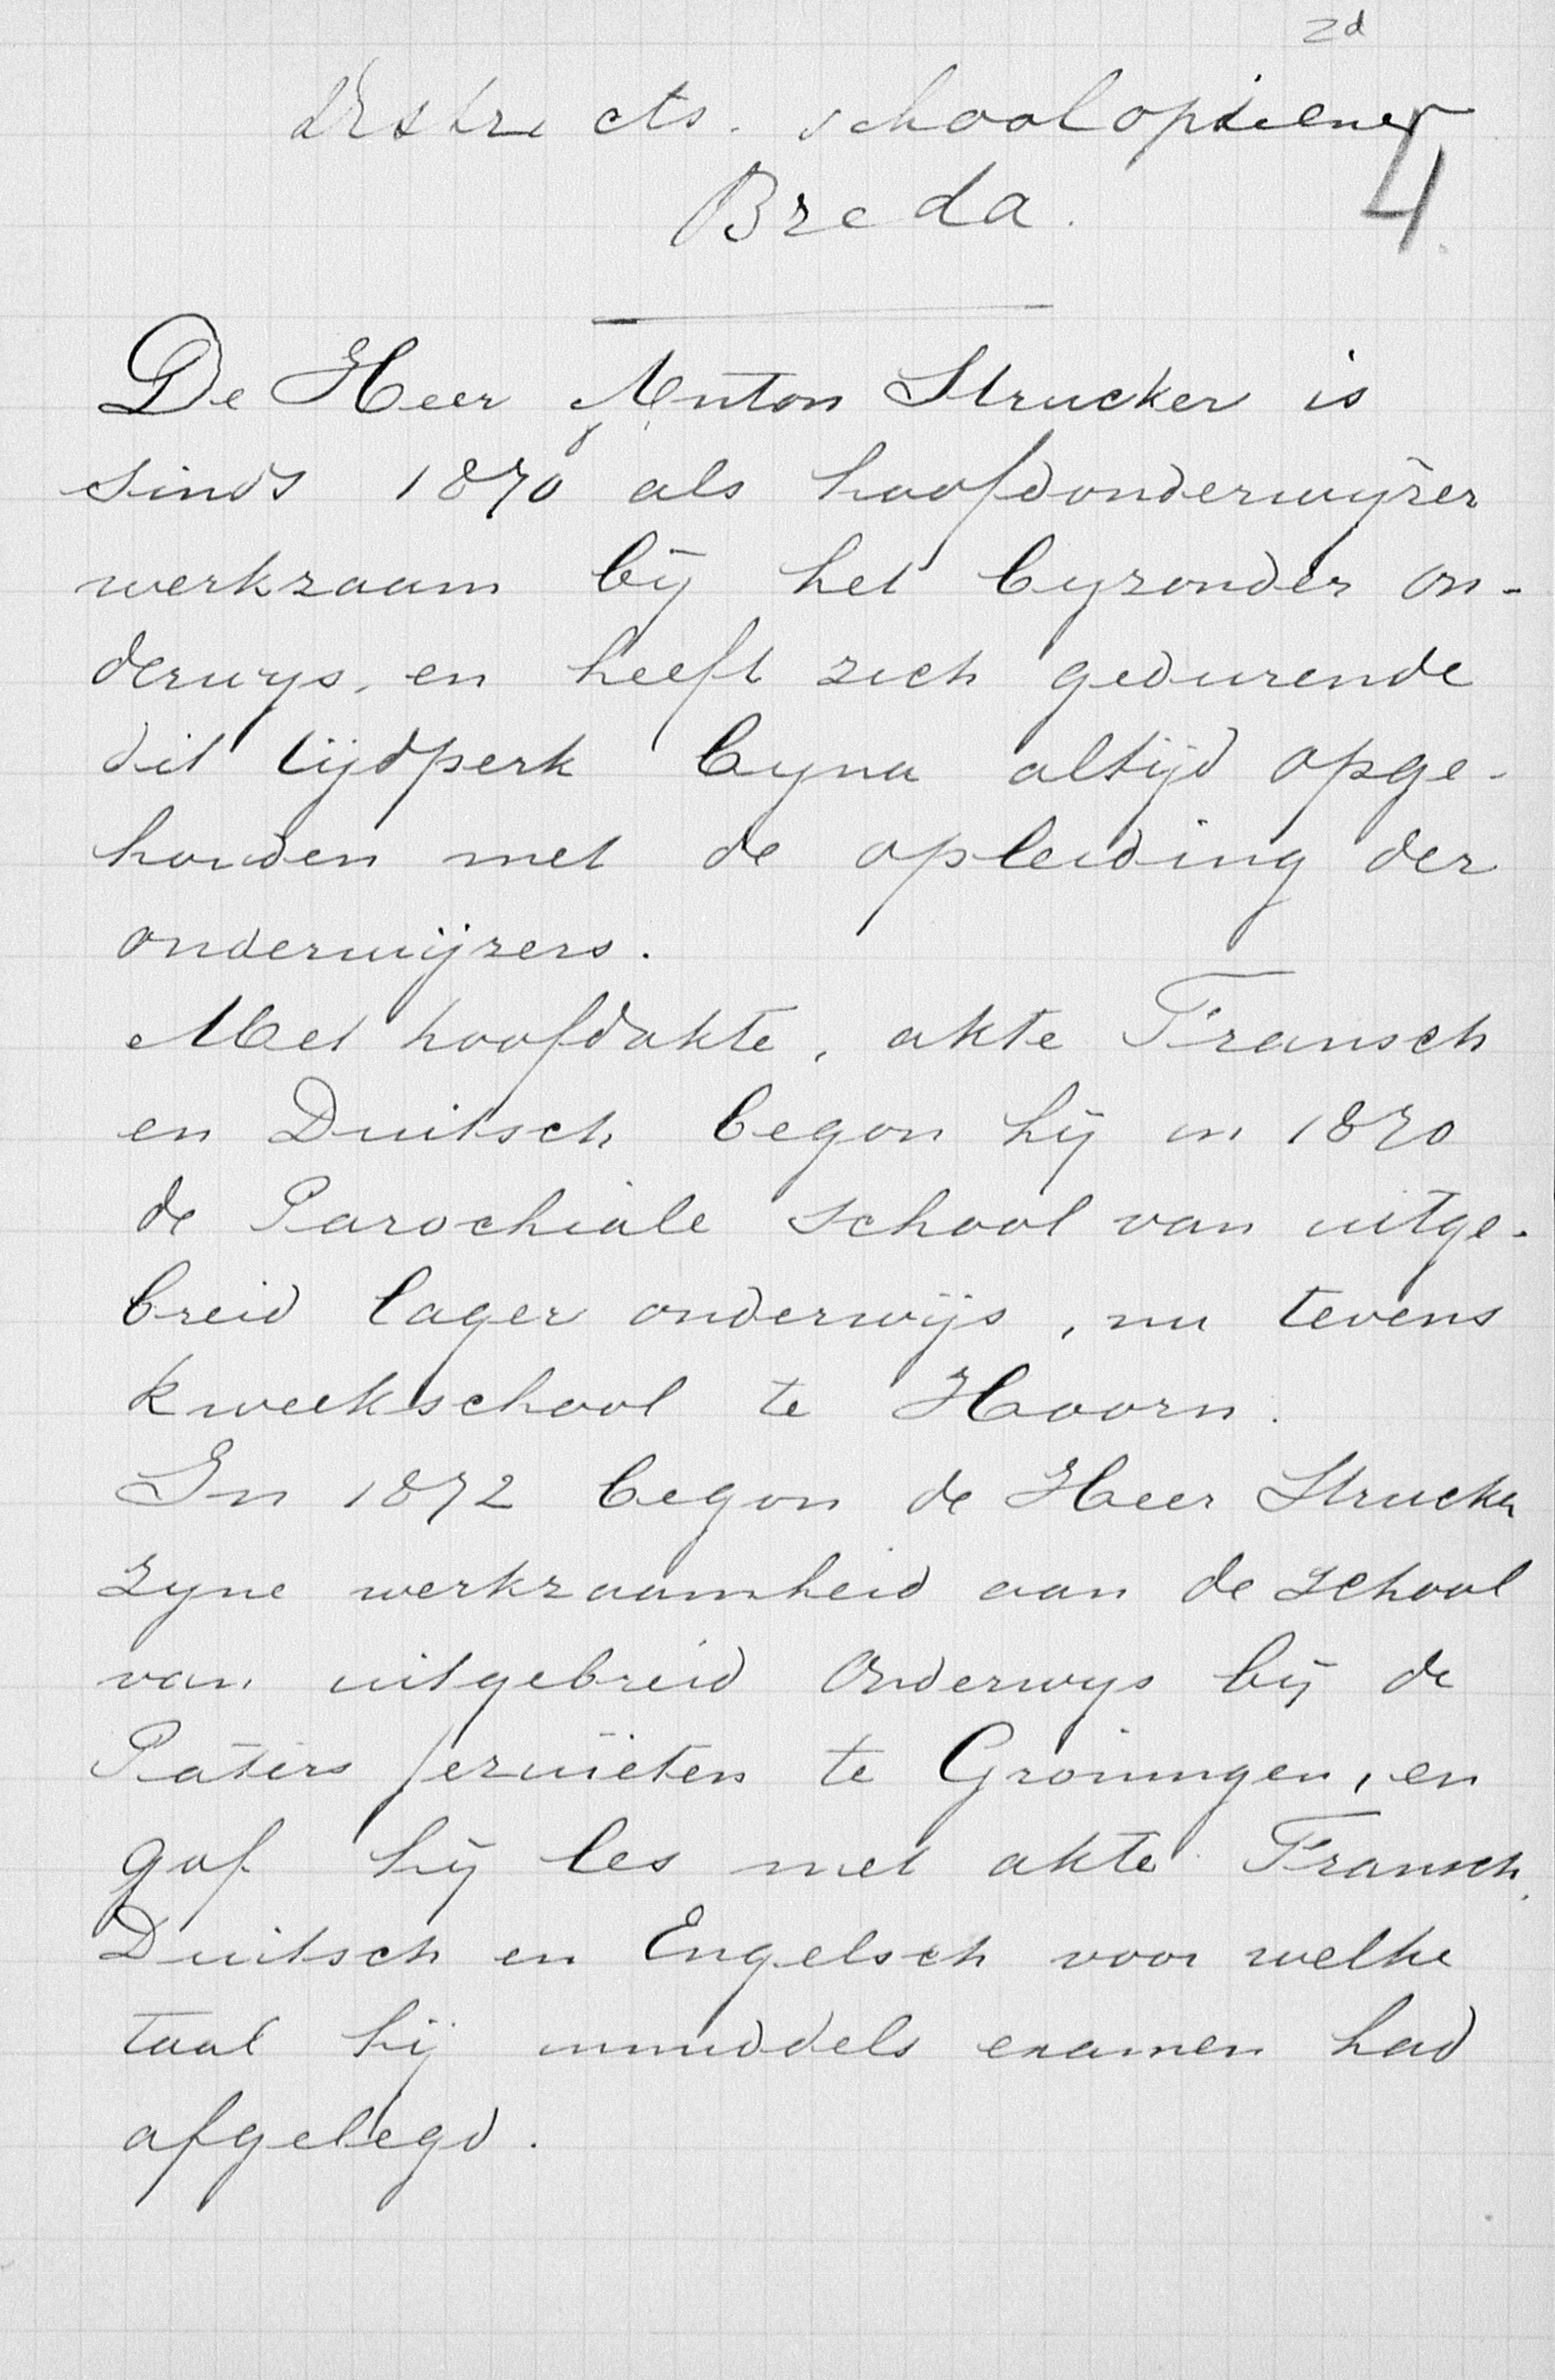 2d
Districts. schoolopziener
4
Breda.
De Heer Anton Strucker is
sinds 1870 als hoofdonderwijzer
werkzaam bij het byzonder on-
derwys, en heeft zich gedurende
dit tijdperk byna altijd opge-
houden met de opleiding der
onderwijzers.
Met hoofdakte, akte Fransch
en Duitsch begon hij in 1870
de Parochiale school van uitge-
breid lager onderwijs, nu tevens
kweekschool te Hoorn.
In 1872 begon de Heer Strucker
zyne werkzaamheid aan de school
van uitgebreid Onderwys bij de
Paters Jezuïeten te Groningen, en
gaf hij les met akte Fransch,
Duitsch en Engelsch voor welke
taal hij inmiddels examen had
afgelegd.